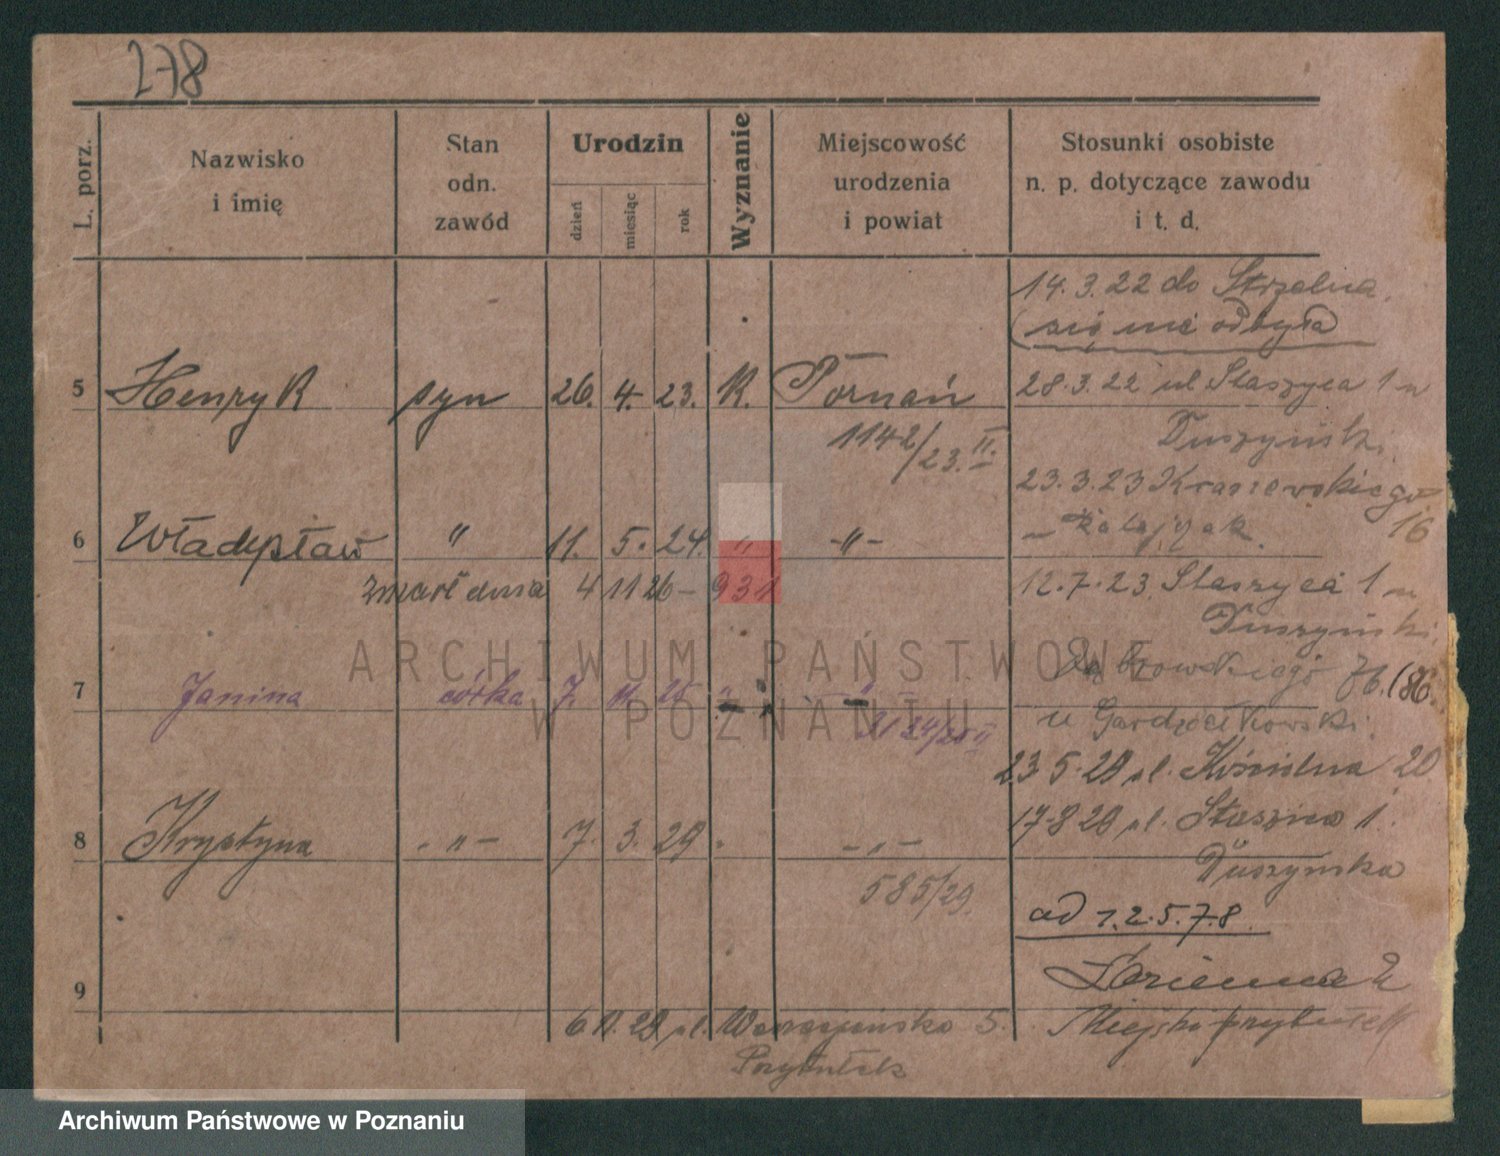 278
L. porz.
Nazwisko
i imię
Stan
odn.
zawód
Urodzin
dzień
miesiąc
rok
Wyznanie
Miejscowość
urodzenia
i powiat
Stosunki osobiste
n. p. dotyczące zawodu
i t. d.
14.3.22 do Strzelna
(się nie odbyła)
5 Henryk syn 26. 4. 23. K. Poznań
28.3.22 ul Staszyca 1 u
1142/23.II.
Duszyński.
23.3.23 Kraszewskiego
16
6 Władysław " 11. 5. 24. " -"-
zmarł dnia 4 11 26 - 931
12.7.23. Staszyca 1 u
Duszyński.
Dąbrowskiego 76. (86.
7 Janina córka 7. 11. 25 " "
24/25 II
u
23.5.29 ul. Kościelna 20
17.8.29 ul. Staszica 1.
8 Krystyna -"- 7. 3. 29. -"-
Duszyńska
585/29.
ad 1.2.5.7.8.
9
6 11.29 ul. 5.
Miejski przytułek
Przytułek
ARCHIWUM PAŃSTWOWE
W POZNANIU
Archiwum Państwowe w Poznaniu